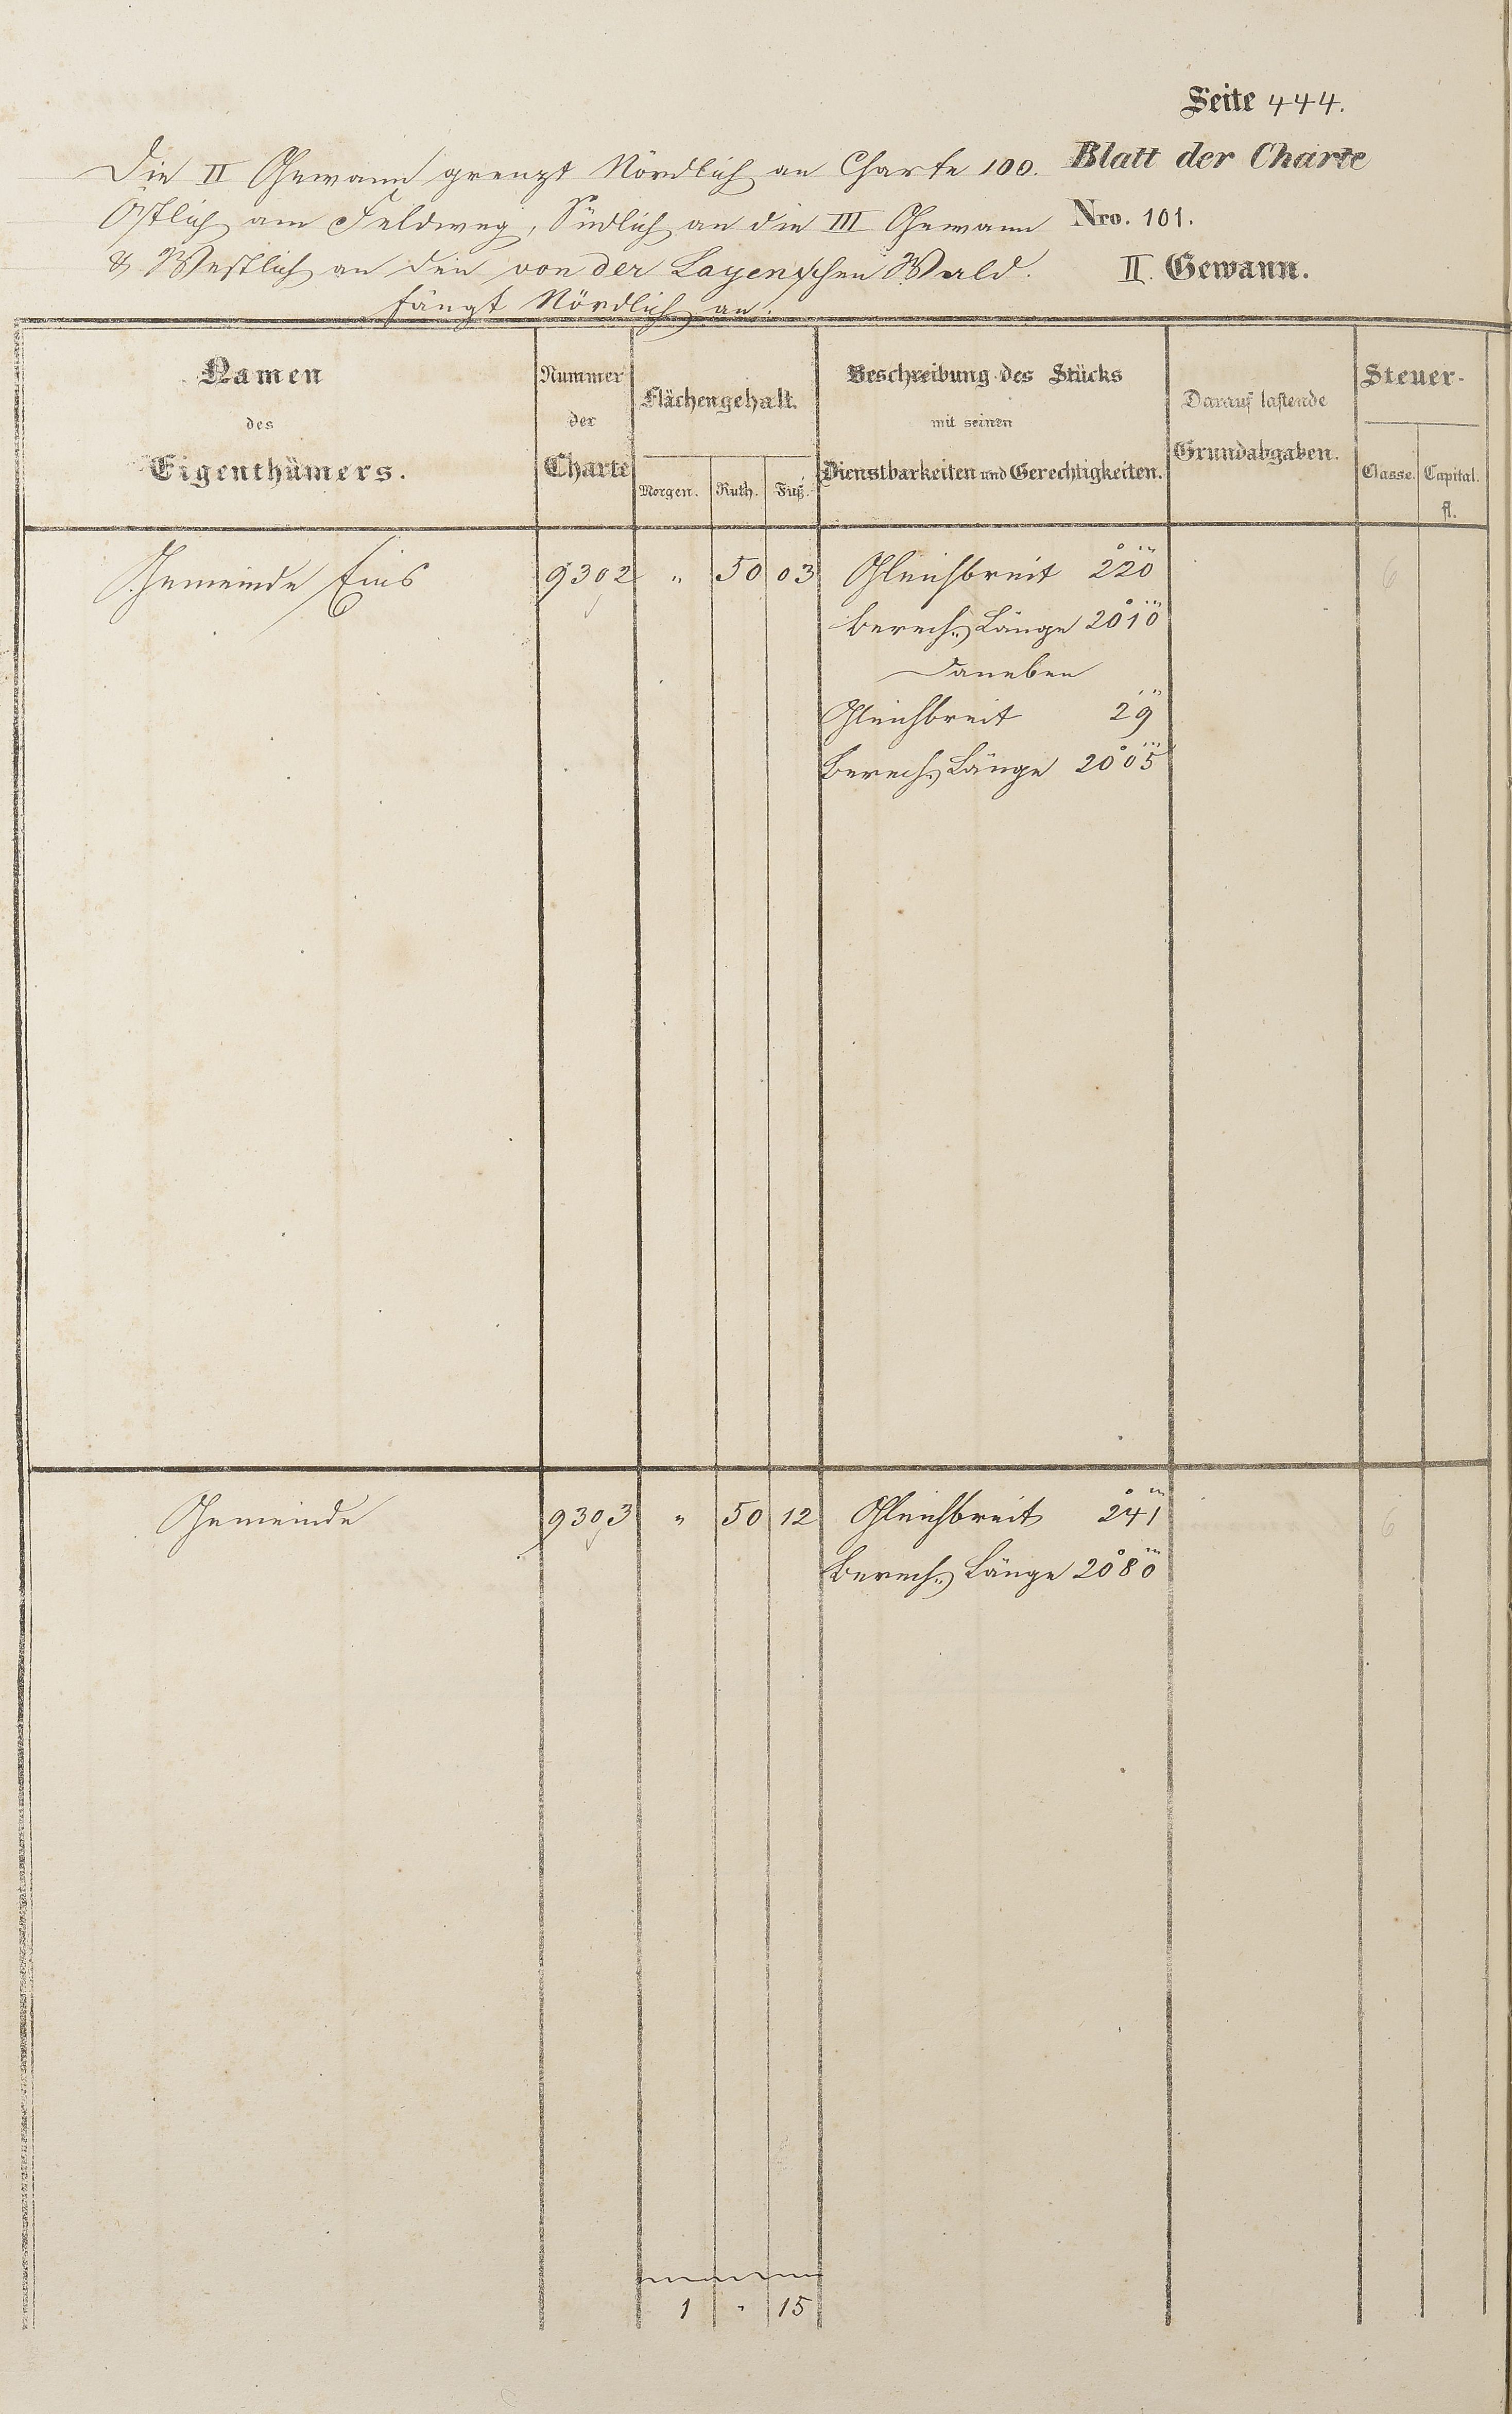 Seite 444.
Die II Gewann grenzt Nördlich an Charte 100. Blatt der Charte
Östlich am Feldweg, Südlich an die III Gewann Nro. 101.
& Westlich an den von der Layenschen Wald. II. Gewann.
fängt Nördlich an:
Namen des Eigenthümers.
Nummer der Charte
Flächengehalt.
Morgen. Ruth. Fuß.
Beschreibung des Stücks
mit seinen
Dienstbarkeiten und Gerechtigkeiten.
Darauf lastende
Grundabgaben.
Steuer-
Classe. Capital.
fl.
Gemeinde Ems 9302 " 50 03 Gleichbreit 2°20''' 6
berech. Länge 20°10'''
Daneben
Gleichbreit 2'9''
Berech. Länge 20°05'''
Gemeinde 9303 " 50 12 Gleichbreit 2°41''' 6
Berech. Länge 20°80'''
1 " 15